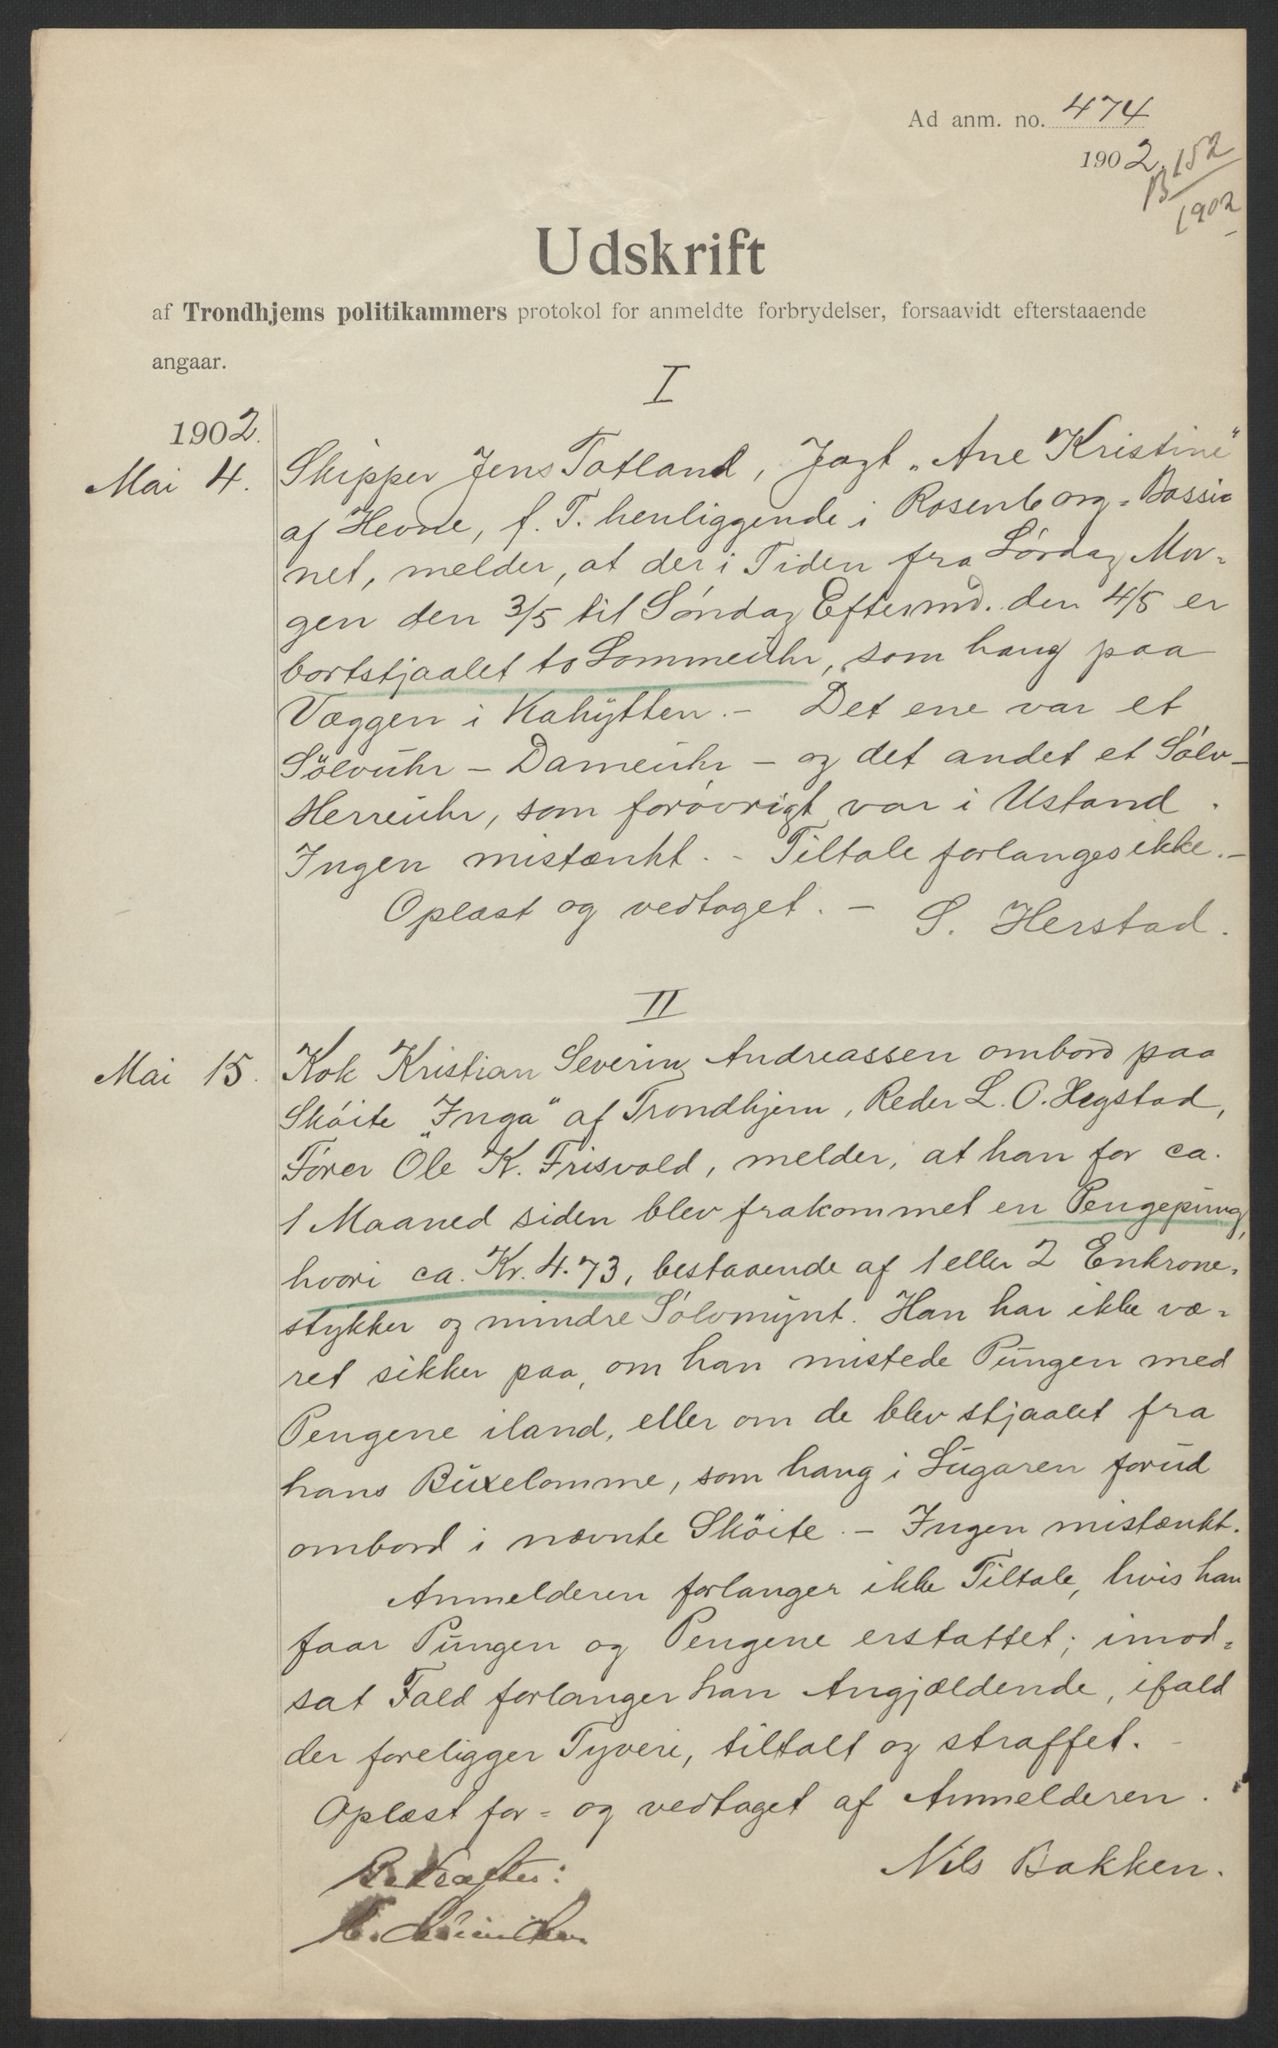 Ad anm. no. 474
1902.
B 152
1902
Udskrift
af Trondhjems politikammers protokol for anmeldte forbrydelser, forsaavidt efterstaaende
angaar.
I
1902.
Mai 4. Skipper Jens Totland, Jagt „Ane Kristine"
af Hevne, f. T. henliggende i Rosenborg-Bassi-
net, melder, at der i Tiden fra Lørdag Mor-
gen den 3/5 til Søndag Eftermd. den 4/5 er
bortstjaalet to Lommeuhr, som hang paa
Væggen i Kahytten. – Det ene var et
Sölvuhr – Dameuhr – og det andet et Sølv-
Herreuhr, som forøvrigt var i Ustand.
Ingen mistænkt. – Tiltale forlanges ikke. –
Oplæst og vedtaget. – S. Herstad.
II
Mai 15. Kok Kristian Severin Andreassen ombord paa
Skøite „Inga" af Trondhjem, Reder L. O. Hegstad,
Fører Ole K. Frisvold, melder, at han for ca.
1 Maaned siden blev frakommet en Pengepung,
hvori ca. Kr. 4.73, bestaaende af 1 eller 2 Enkrone-
stykker og mindre Sølvmynt. Han har ikke væ-
ret sikker paa, om han mistede Pungen med
Pengene iland, eller om de blev stjaalet fra
hans Buxelomme, som hang i Lugaren forud
ombord i nævnte Sköite. – Ingen mistænkt.
Anmelderen forlanger ikke Tiltale, hvis han
faar Pungen og Pengene erstattet; imod-
sat Fald forlanger han Angjældende, ifald
der foreligger Tyveri, tiltalt og straffet. –
Oplæst for- og vedtaget af Anmelderen.
Nils Bakken.
Bekræftes: